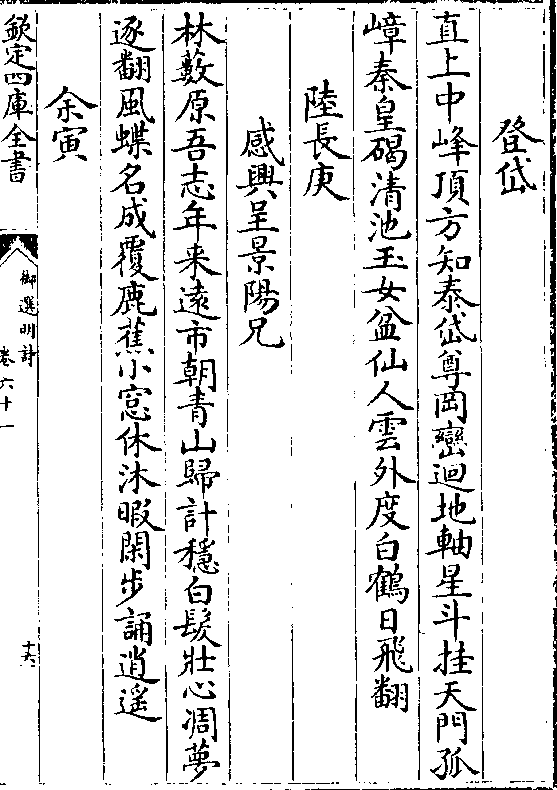 登岱
直上中峰頂方知泰岱尊岡巒迴地軸星斗挂天門孤
嶂秦皇碣清池玉女盆仙人雲外度白鶴日飛翻
陸長庚
感興呈景陽兄
林藪原吾志年来遠市朝青山歸計穩白髮壯心凋夢
逐翻風蝶名成覆鹿蕉小窓休沐暇閑步誦逍遙
余寅
欽定四庫全書
御選明詩
卷六十一
十六